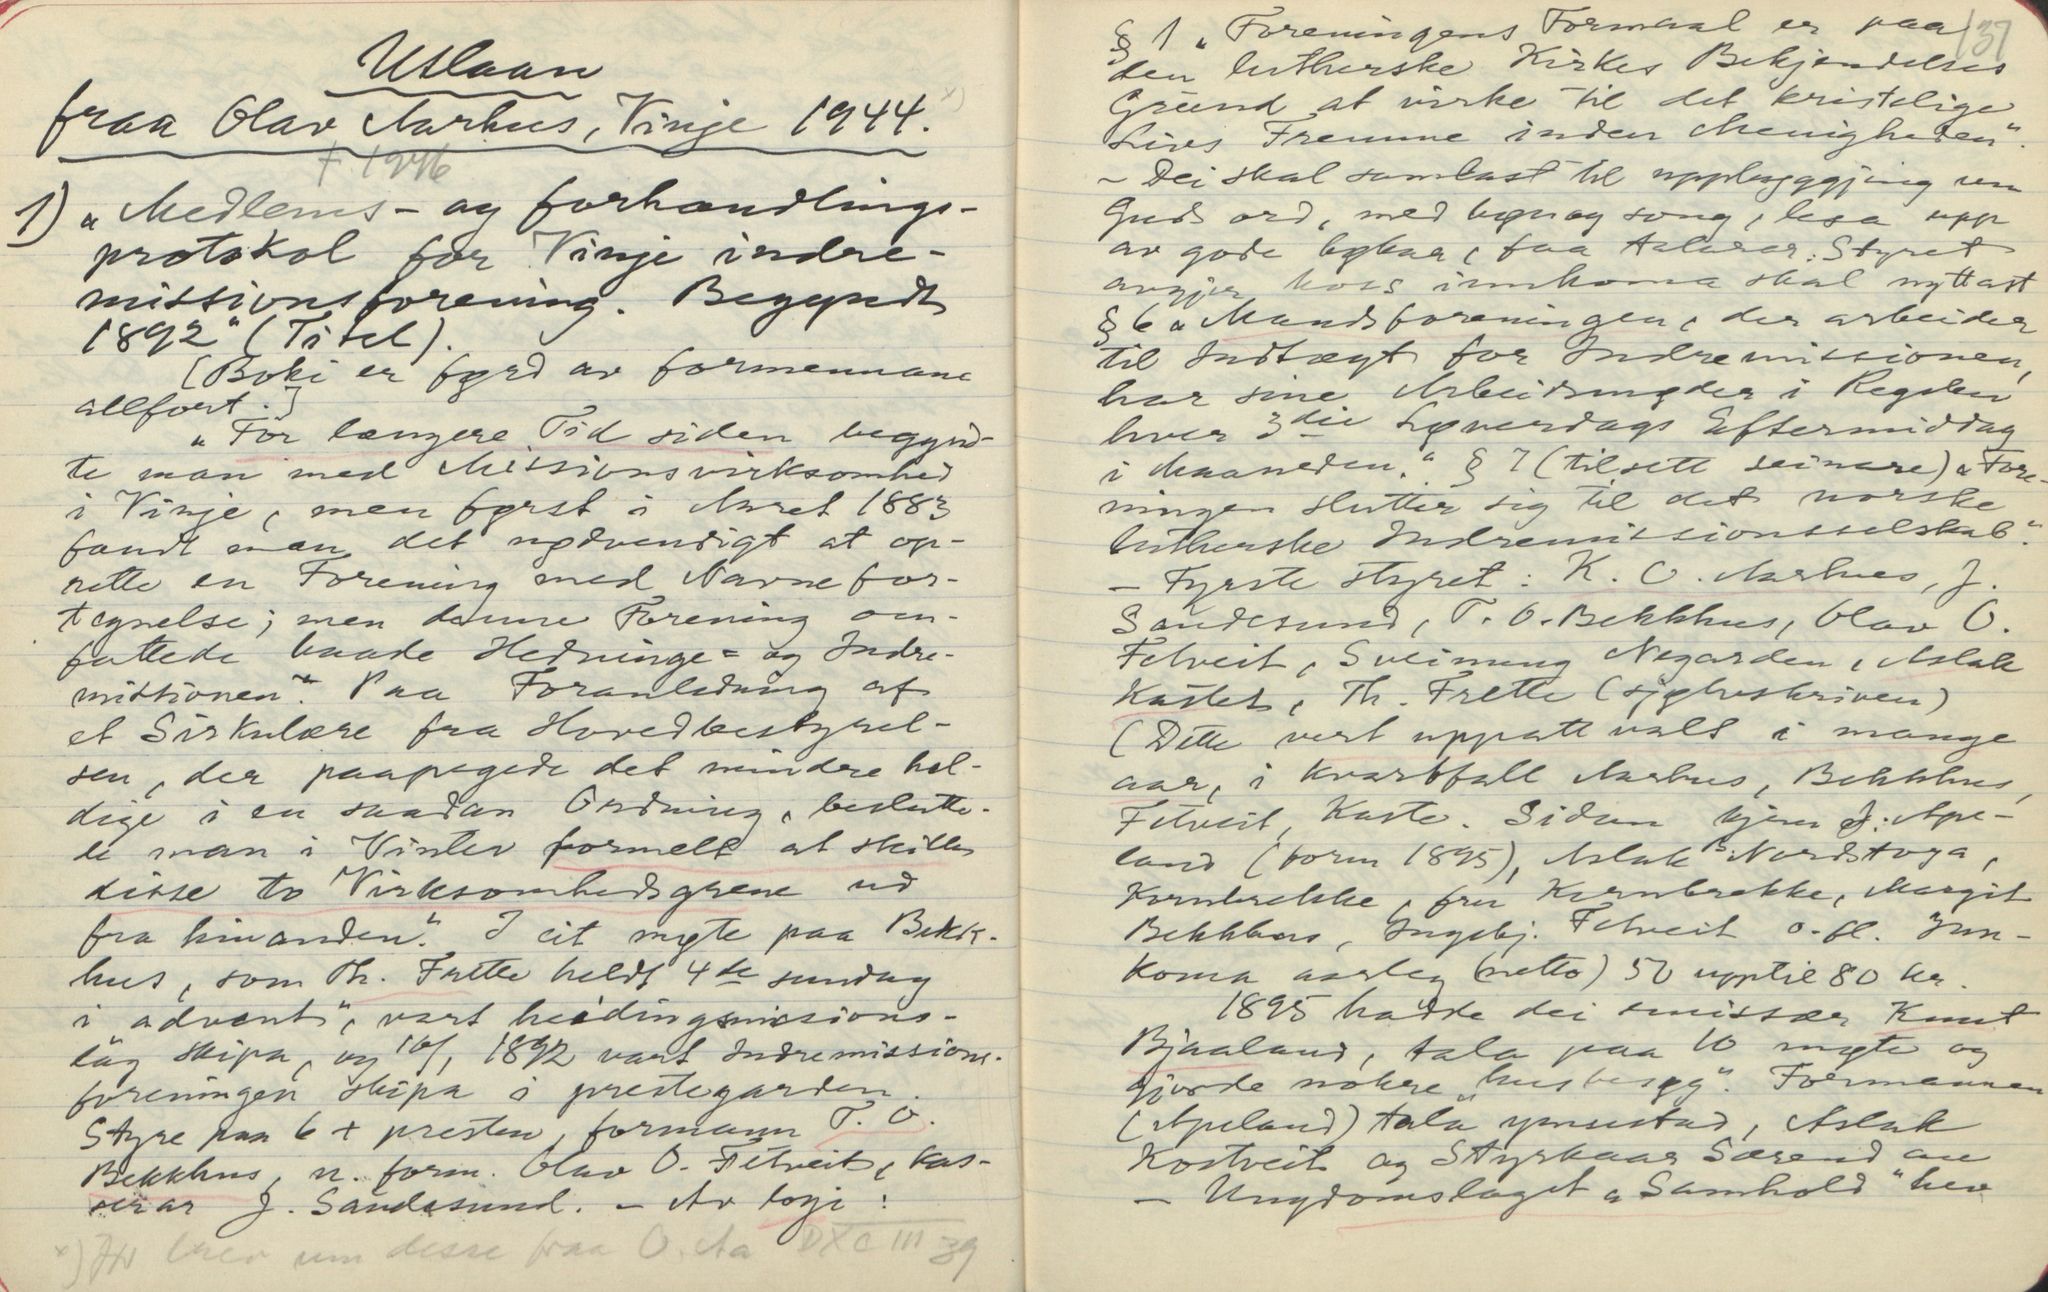 Utlaan
fraa Olav Aarhus, Vinje 1944. x)
† 1946
1) „Medlems- og forhandlings-
protokol for Vinje indre-
missionsforening. Begyndt
1892" (Titel).
(Boki er førd av formennane
allfort.)
„For længere Tid siden begynd-
te man med Missionsvirksomhed
i Vinje, men først i Aaret 1883
fandt man det nødvendigt at op-
rette en Forening med Navnefor-
tegnelse; men denne Forening om-
fattede baade Hedninge- og Indre-
missionen". Paa Foranledning af
et Sirkulære fra Hovedbestyrel-
sen, der paapegede det mindre hel-
dige i en saadan Ordning, beslutte-
de man i Vinter formelt at skille
disse to Virksomhedsgrene ud
fra hinanden". I eit møte paa Bekk-
hus, som Th. Frette heldt 4de sundag
i advent", vart heidingsmissions-
lag skipa, og 10/1 1892 vart Indremissions-
foreningen skipa i prestegarden.
Styre paa 6 + presten, formann T. O.
Bekkhus, n. form. Olav O. Fetveit, kas-
serar J. Sandesund. – Av logi:
x) Jfr brev um desse fraa O. Aa DXC III 39
137
§ 1 „Foreningens Formaal er paa
den lutherske Kirkes Bekjendelses
Grund at virke til det kristelige
Livs Fremme inden Menigheden".
– Dei skal samlast til uppbyggjing um
Guds ord, med bøn og song, lesa upp
av gode bøkar, faa talarar. Styret
avgjer kvos innkoma skal nyttast
§ 6 „Mandsforeningen, der arbeider
til Indtægt for Indremissionen,
har sine Arbeidsmøder i Regelen
hver 3die Løverdags Eftermiddag
i Maaneden." § 7 (tilsett seinare) „Fore-
ningen slutter sig til det norske
lutherske Indremissionsselskab".
– Fyrste styret: K. O. Aarhus, J.
Sandesund, T. O. Bekkhus, Olav O.
Fetveit, Sveinung Negarden, Aslak
Kaste, Th. Frette (sjølvskriven)
(Dette vert uppatt valt i mange
aar, i kvartfall Aarhus, Bekkhus,
Fetveit, Kaste. Sidan kjem J. Ape-
land (form 1895), Aslak Nordstoga,
Kornbrekke, fru Kornbrekke, Margit
Bekkhus, Ingebj. Fetveit o. fl. Inn-
koma aarleg (netto) 50 upptil 80 kr.
1895 hadde dei emissær Knut
Bjaaland, tala paa 10 møte og
gjorde nokre „husbesøg". Formannen
(Apeland) tala ymsestad, Aslak
Kostveit og Styrkaar Særend au
– Ungdomslaget „Samhold" hev